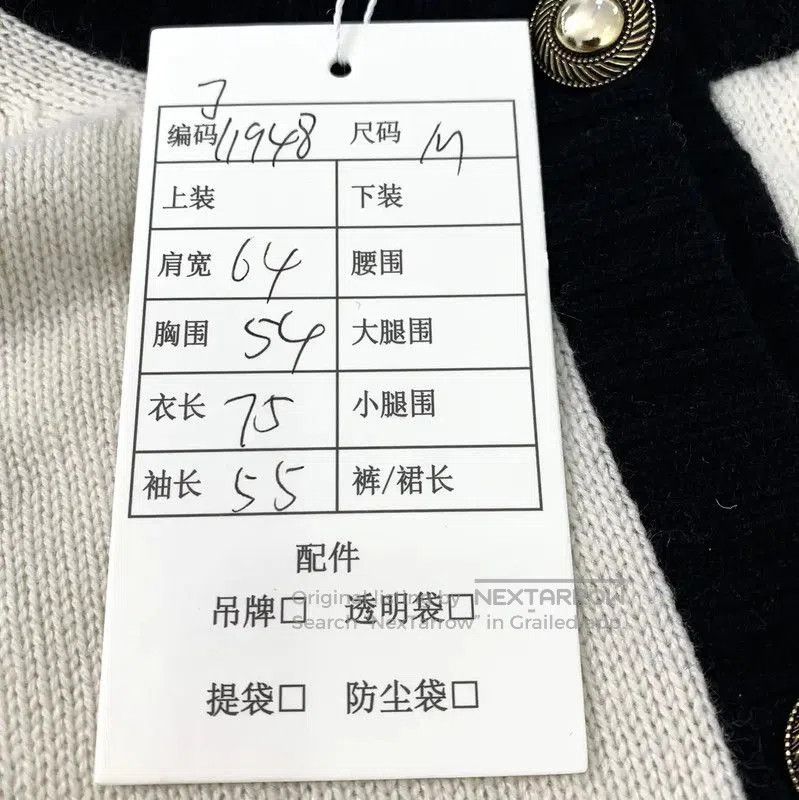 J
编码 11948 尺码 M
上装 下装
肩宽 64 腰围
胸围 54 大腿围
衣长 75 小腿围
袖长 55 裤/裙长
配件
Original listing by NEXTARROW
吊牌□ 透明袋□
Search "NexTarrow" in Grailed app
提袋□ 防尘袋□